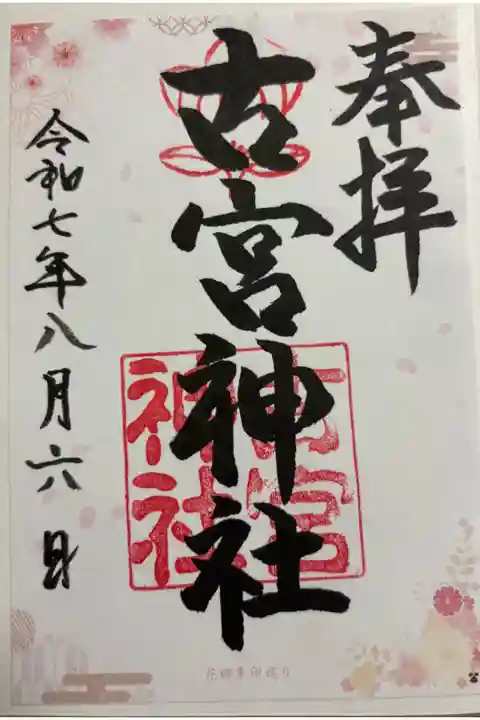 奉拝
古宮神社
古宮
神社
令和七年八月六日
花御朱印巡り